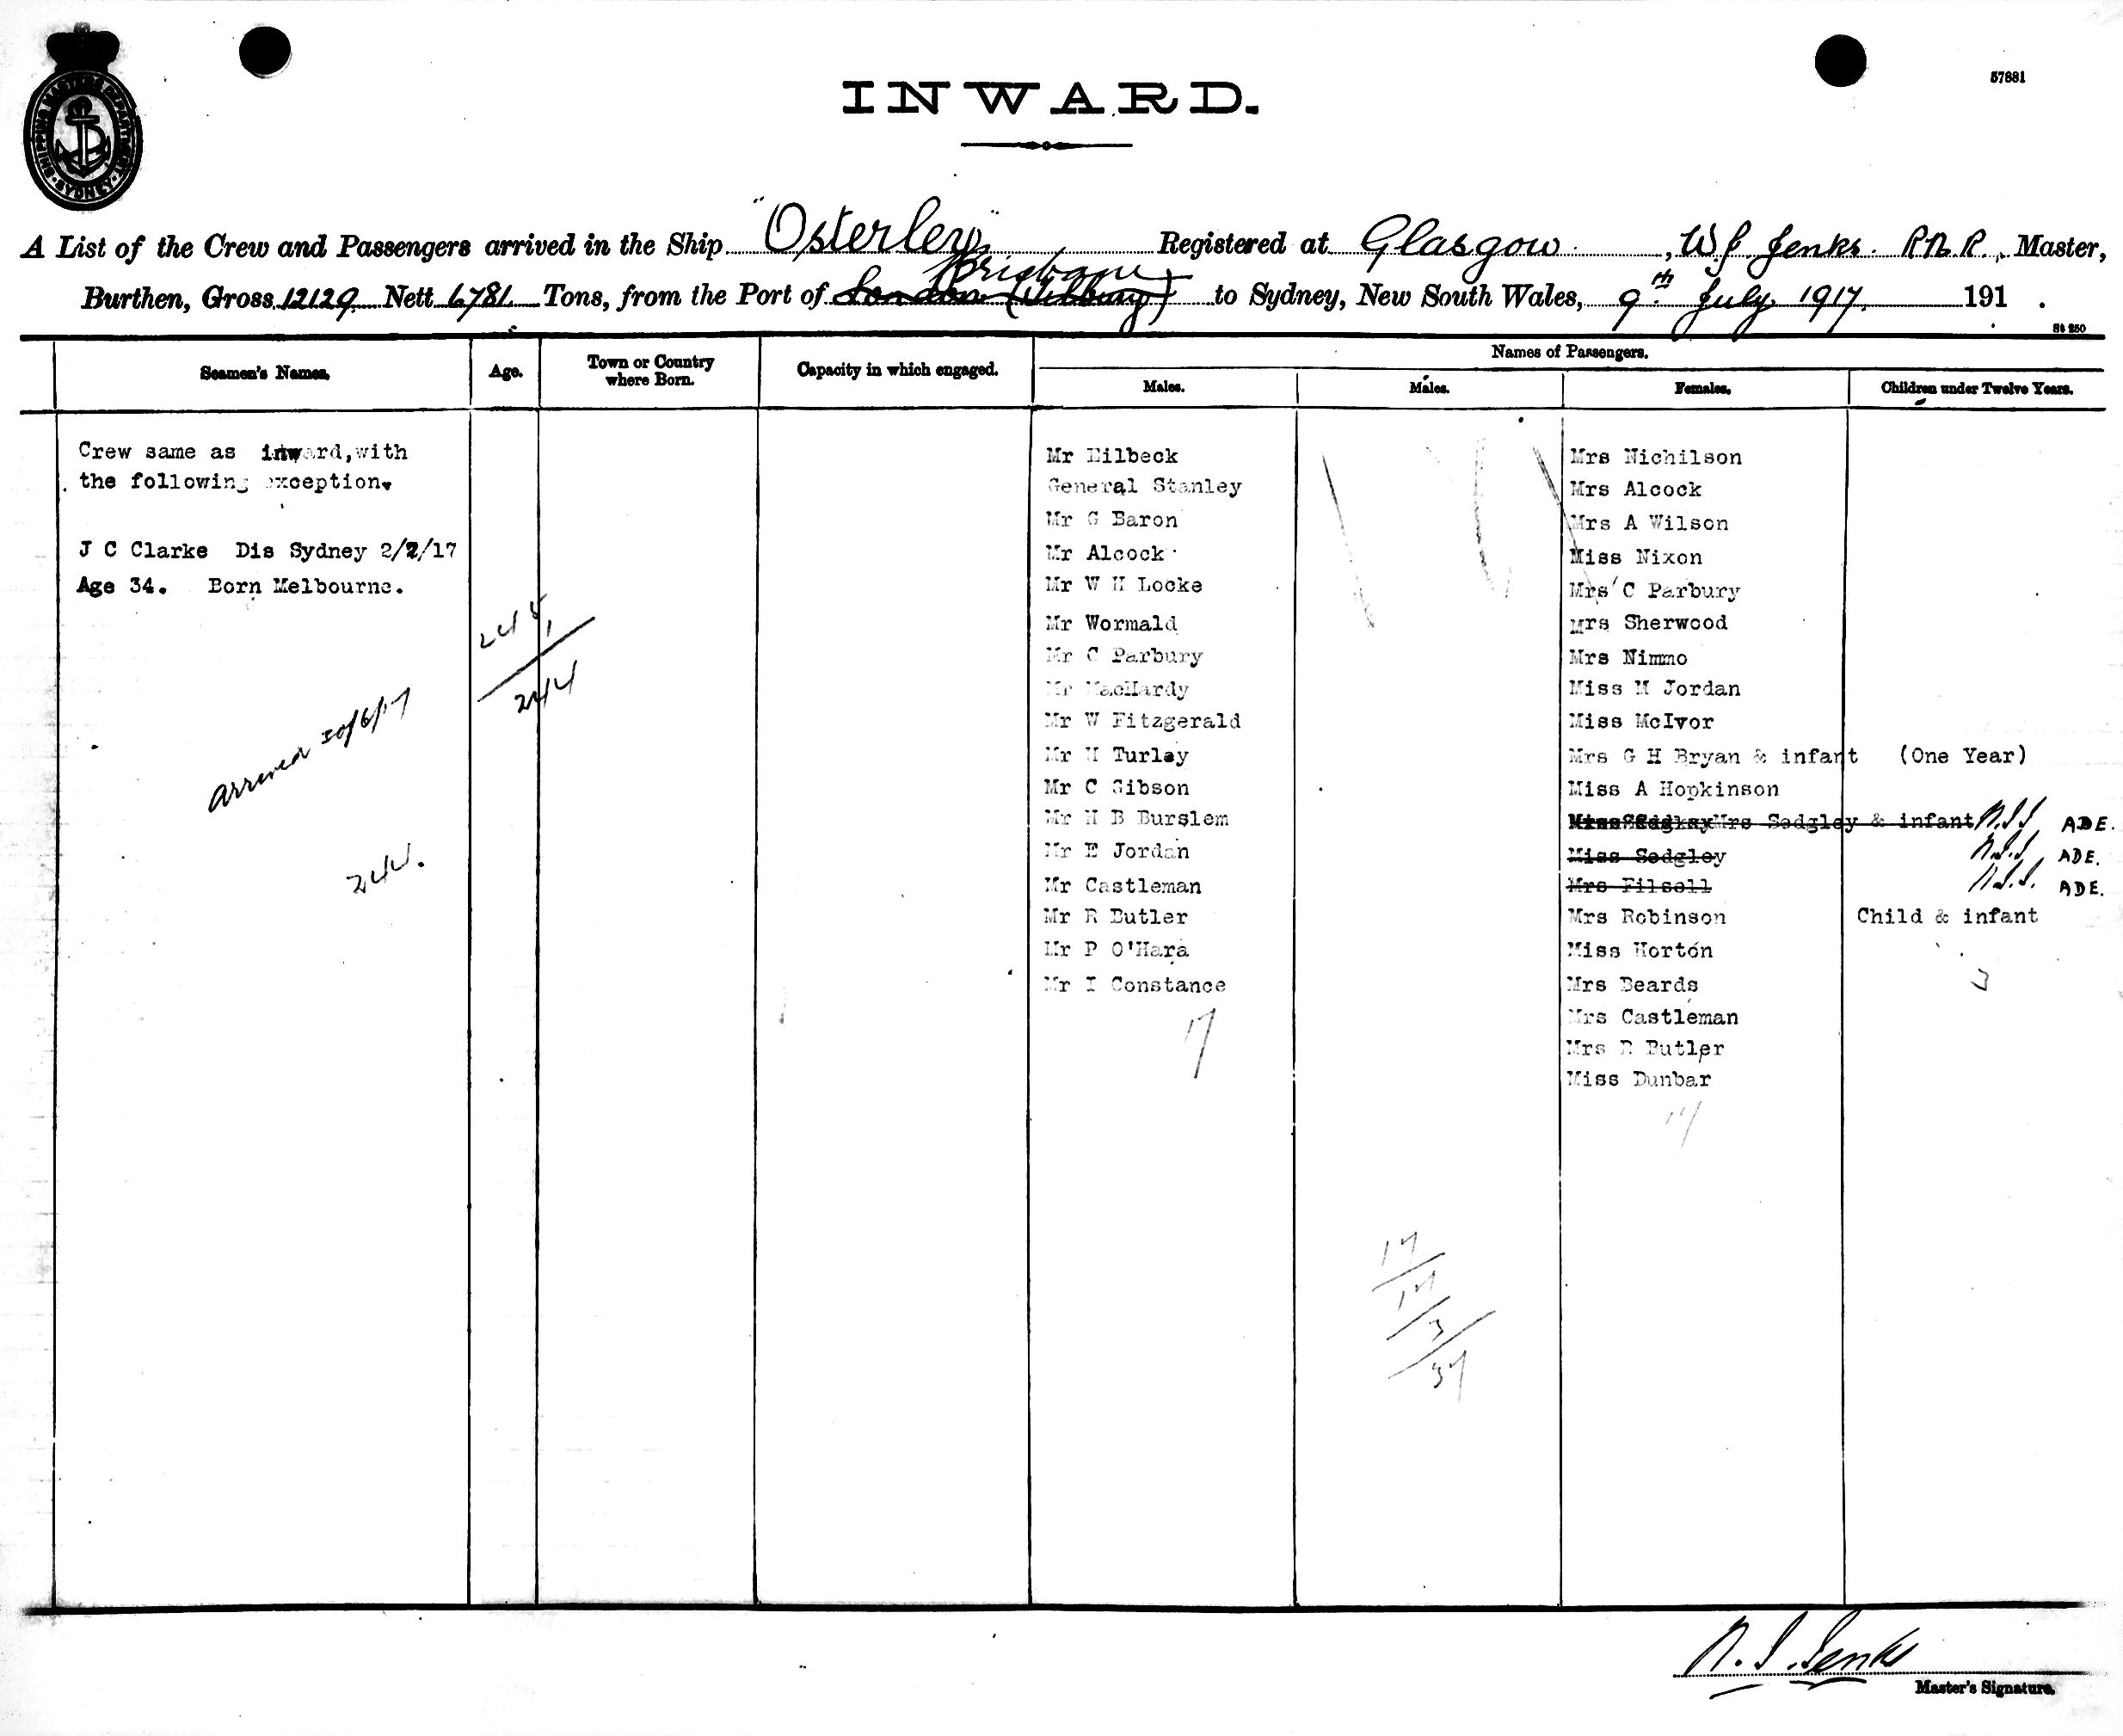 SHIPPING MASTERS DEPARTMENT
SYDNEY
57881
INWARD.
A List of the Crew and Passengers arrived in the Ship "Osterley" Registered at Glasgow, W J Jenks. R.N.R., Master,
Brisbane
Burthen, Gross 12129 Nett 6781 Tons, from the Port of London (Tilbury) to Sydney, New South Wales, 9th July 1917. 191 .
St 250
Seamen's Names. Age. Town or Country where Born. Capacity in which engaged. Names of Passengers.
Males. Males. Females. Children under Twelve Years.
Crew same as inward, with
the following exception.
J C Clarke Dis Sydney 2/2/17
Age 34. Born Melbourne.
245
1
244
arrived 30/6/17
244.
Mr Eilbeck
General Stanley
Mr G Baron
Mr Alcock
Mr W H Locke
Mr Wormald
Mr C Parbury
Mr MacHardy
Mr W Fitzgerald
Mr H Turley
Mr C Gibson
Mr H B Burslem
Mr E Jordan
Mr Castleman
Mr R Butler
Mr P O'Hara
Mr I Constance
17
17
17
3
37
Mrs Nichilson
Mrs Alcock
Mrs A Wilson
Miss Nixon
Mrs C Parbury
Mrs Sherwood
Mrs Nimmo
Miss M Jordan
Miss McIvor
Mrs G H Bryan & infant (One Year)
Miss A Hopkinson
Mrs Sedgley & infant ADE.
Miss Sedgley ADE.
Mrs Filsell ADE.
Mrs Robinson Child & infant
Miss Horton
Mrs Beards 3
Mrs Castleman
Mrs R Butler
Miss Dunbar
17
W. J. Jenks
Master's Signature.